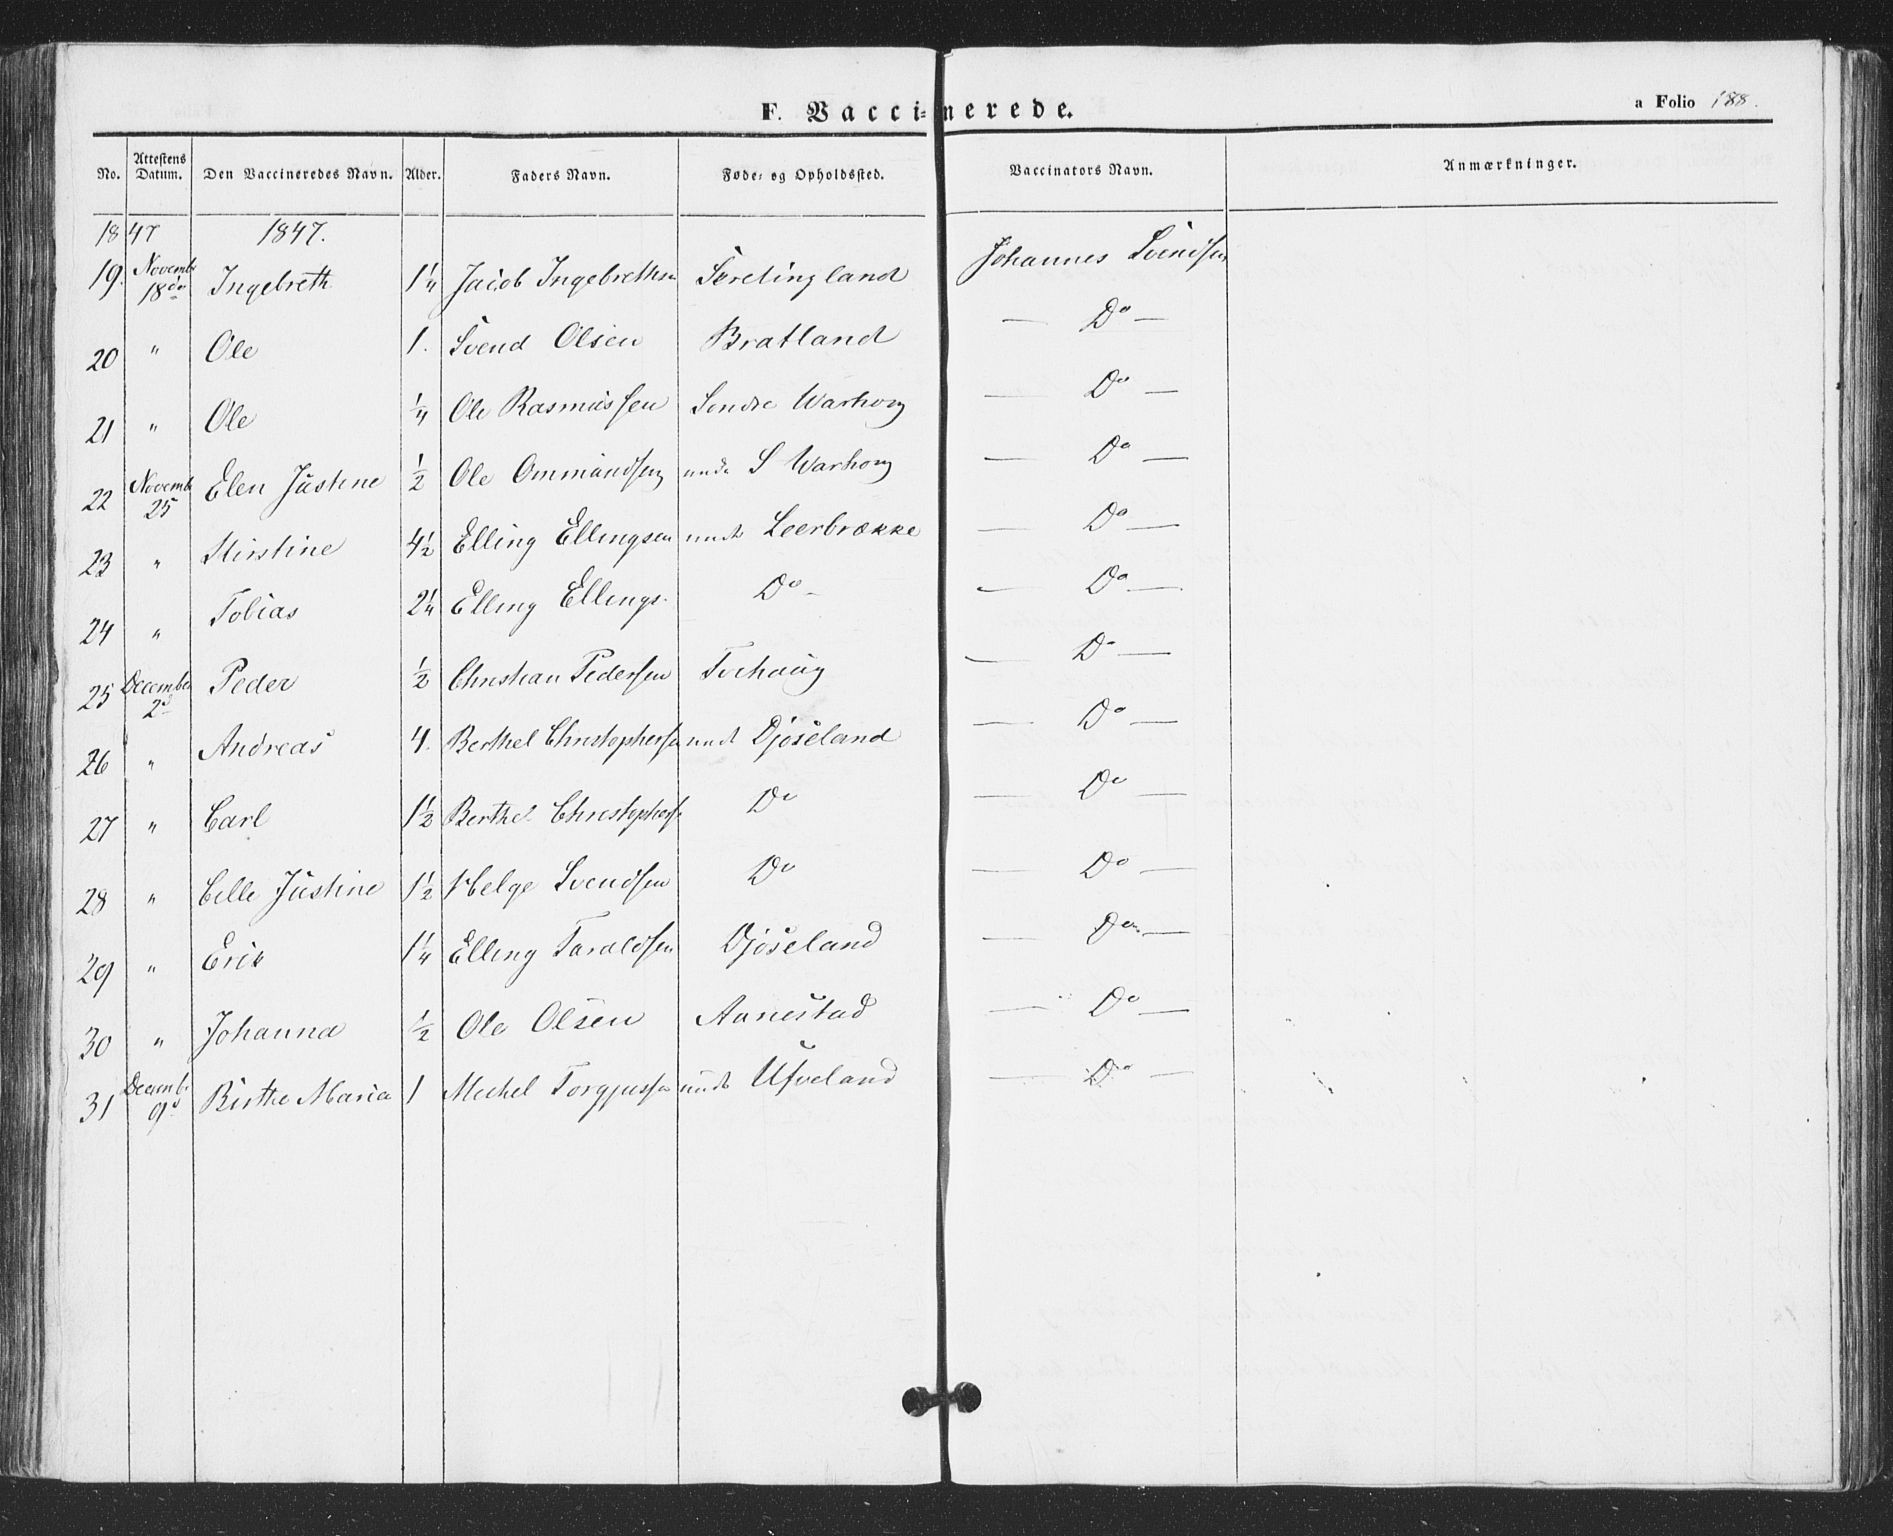 F. Vaccinerede.
a Folio 188.
No. Attestens Datum. Den Vaccineredes Navn. Alder. Faders Navn. Føde- og Opholdssted. Vaccinators Navn. Anmærkninger.
1847 1847.
19. Novemb 18de Ingebreth 1¼ Jacob Ingebrethsn Sveetingland Johannes Svendsen
20 " Ole 1. Svend Olsen Bratland — Do —
21 " Ole ¼ Ole Rasmussen Søndre Warhoug — Do —
22 Novemb 25 Elen Justine ½ Ole Ommundsen unde S Warhoug — Do —
23 " Kirstine 4½ Elling Ellingsen unde Leerbrække — Do —
24 " Tobias 2¼ Elling Ellings. Do — — Do —
25 December 2d Peder ½ Christian Pedersen Tuehaug — Do —
26 " Andreas 4. Berthel Christophersen und Djøseland — Do —
27 " Carl 1½ Berthel Christophers Do — Do —
28 " Celle Justine 1½ Helge Svendsen Do — Do —
29 " Erik 1¼ Elling Taraldsen Djøseland — Do —
30 " Johanna ½ Ole Olsen Aanestad — Do —
31 Decemb 9d Birthe Maria 1 Michel Torgjussen unde Ufveland — Do —